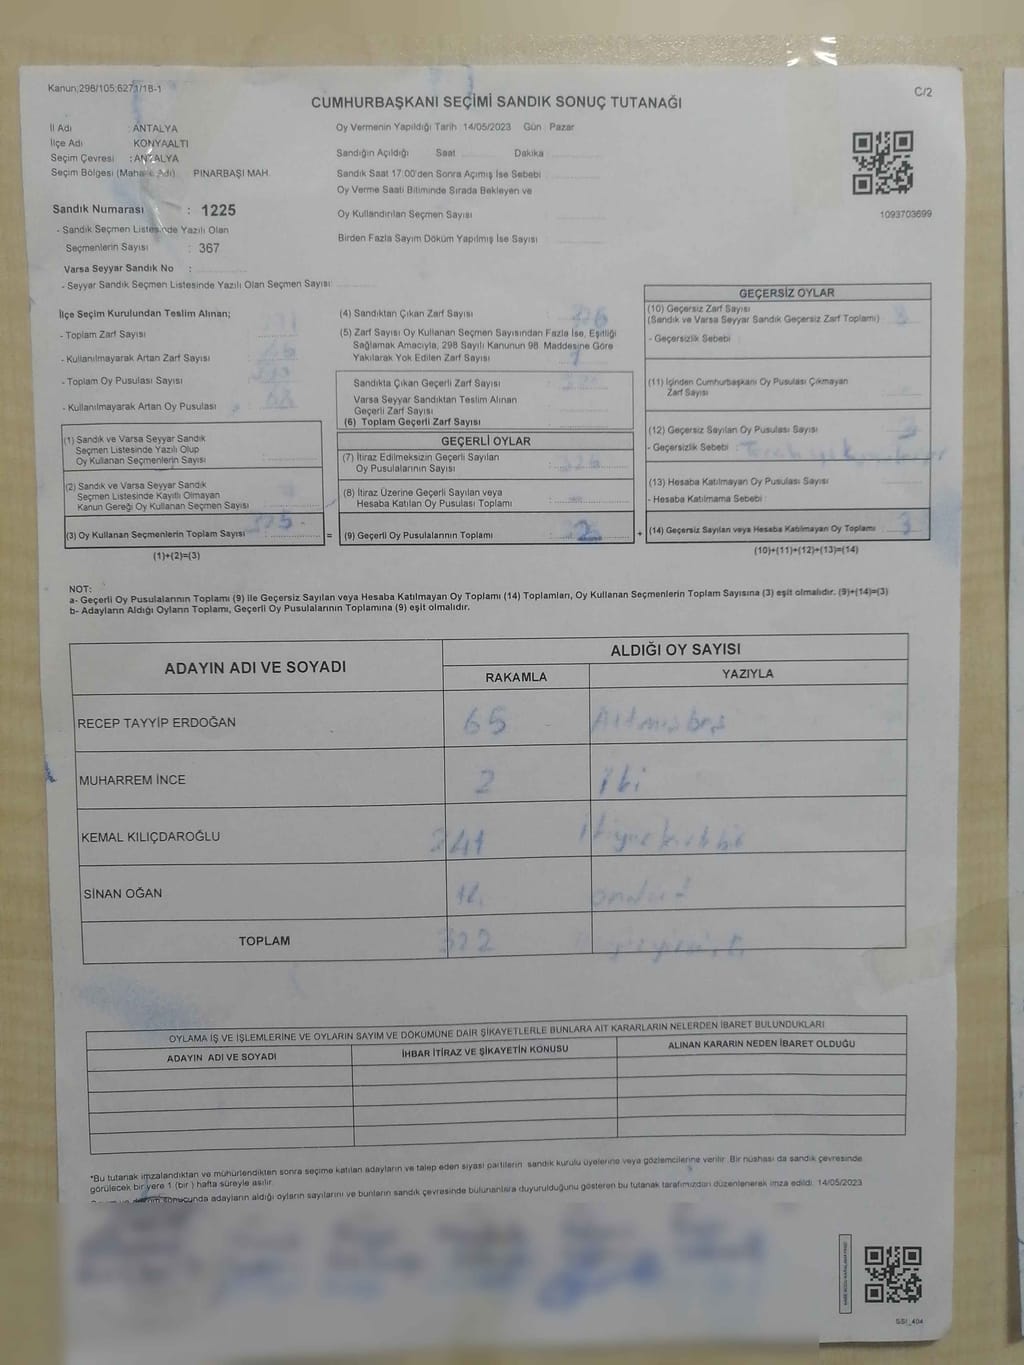 Kanun;298/105;6271/18-1
C/2
CUMHURBAŞKANI SEÇİMİ SANDIK SONUÇ TUTANAĞI
İl Adı : ANTALYA
İlçe Adı KONYAALTI
Seçim Çevresi : ANTALYA
Seçim Bölgesi (Mahalle Adı) PINARBAŞI MAH.
Sandık Numarası : 1225
- Sandık Seçmen Listesinde Yazılı Olan
Seçmenlerin Sayısı : 367
Varsa Seyyar Sandık No :
- Seyyar Sandık Seçmen Listesinde Yazılı Olan Seçmen Sayısı:
Oy Vermenin Yapıldığı Tarih 14/05/2023 Gün : Pazar
Sandığın Açıldığı Saat Dakika
Sandık Saat 17:00'den Sonra Açımış İse Sebebi
Oy Verme Saati Bitiminde Sırada Bekleyen ve
Oy Kullandırılan Seçmen Sayısı
Birden Fazla Sayım Döküm Yapılmış İse Sayısı
1093703699
İlçe Seçim Kurulundan Teslim Alınan;
- Toplam Zarf Sayısı
- Kullanılmayarak Artan Zarf Sayısı
- Toplam Oy Pusulası Sayısı
- Kullanılmayarak Artan Oy Pusulası
(1) Sandık ve Varsa Seyyar Sandık
Seçmen Listesinde Yazılı Olup
Oy Kullanan Seçmenlerin Sayısı
(2) Sandık ve Varsa Seyyar Sandık
Seçmen Listesinde Kayıtlı Olmayan
Kanun Gereği Oy Kullanan Seçmen Sayısı
(3) Oy Kullanan Seçmenlerin Toplam Sayısı 325
(1)+(2)=(3)
(4) Sandıktan Çıkan Zarf Sayısı 326
(5) Zarf Sayısı Oy Kullanan Seçmen Sayısından Fazla İse, Eşitliği
Sağlamak Amacıyla, 298 Sayılı Kanunun 98. Maddesine Göre
Yakılarak Yok Edilen Zarf Sayısı 1
Sandıkta Çıkan Geçerli Zarf Sayısı
Varsa Seyyar Sandıktan Teslim Alınan
Geçerli Zarf Sayısı
(6) Toplam Geçerli Zarf Sayısı
GEÇERLİ OYLAR
(7) İtiraz Edilmeksizin Geçerli Sayılan
Oy Pusulalarının Sayısı
(8) İtiraz Üzerine Geçerli Sayılan veya
Hesaba Katılan Oy Pusulası Toplamı
= (9) Geçerli Oy Pusulalarının Toplamı
GEÇERSİZ OYLAR
(10) Geçersiz Zarf Sayısı
(Sandık ve Varsa Seyyar Sandık Geçersiz Zarf Toplamı)
- Geçersizlik Sebebi :
(11) İçinden Cumhurbaşkanı Oy Pusulası Çıkmayan
Zarf Sayısı
(12) Geçersiz Sayılan Oy Pusulası Sayısı 3
- Geçersizlik Sebebi :
(13) Hesaba Katılmayan Oy Pusulası Sayısı
- Hesaba Katılmama Sebebi :
+ (14) Geçersiz Sayılan veya Hesaba Katılmayan Oy Toplamı 3
(10)+(11)+(12)+(13)=(14)
NOT:
a- Geçerli Oy Pusulalarının Toplamı (9) ile Geçersiz Sayılan veya Hesaba Katılmayan Oy Toplamı (14) Toplamları, Oy Kullanan Seçmenlerin Toplam Sayısına (3) eşit olmalıdır. (9)+(14)=(3)
b- Adayların Aldığı Oyların Toplamı, Geçerli Oy Pusulalarının Toplamına (9) eşit olmalıdır.
ADAYIN ADI VE SOYADI
ALDIĞI OY SAYISI
RAKAMLA YAZIYLA
RECEP TAYYİP ERDOĞAN 65 Altmışbeş
MUHARREM İNCE 2 İki
KEMAL KILIÇDAROĞLU 241 ikiyüzkırkbir
SİNAN OĞAN
TOPLAM 322
OYLAMA İŞ VE İŞLEMLERİNE VE OYLARIN SAYIM VE DÖKÜMÜNE DAİR ŞİKAYETLERLE BUNLARA AİT KARARLARIN NELERDEN İBARET BULUNDUKLARI
ADAYIN ADI VE SOYADI İHBAR İTİRAZ VE ŞİKAYETİN KONUSU ALINAN KARARIN NEDEN İBARET OLDUĞU
*Bu tutanak imzalandıktan ve mühürlendikten sonra seçime katılan adayların ve talep eden siyasi partilerin sandık kurulu üyelerine veya gözlemcilerine verilir. Bir nüshası da sandık çevresinde
görülecek bir yere 1 (bir ) hafta süreyle asılır.
sonucunda adayların aldığı oyların sayılarını ve bunların sandık çevresinde bulunanlara duyurulduğunu gösteren bu tutanak tarafımızdan düzenlenerek imza edildi. 14/05/2023
SSI_404